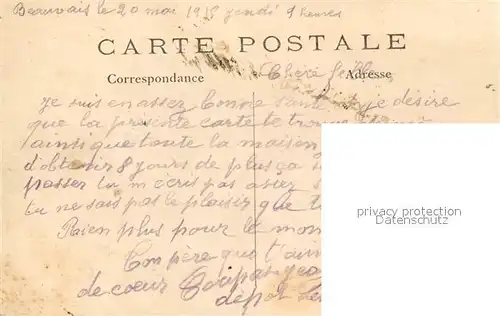 Beauvais le 20 mai 1915 jeudi 9 heures
CARTE POSTALE
Correspondance
Adresse
Chère
Je suis en assez bonne santé et je désire
que la présente carte te trouve
ainsi que toute la maison
d'obtenir 8 jours de plus ça
passer tu m'écris pas assez
tu ne sais pas le plaisir que
Rien plus pour le mom
Ton père que t'aime
de coeur
dépot
privacy protection
www.delcampe.net